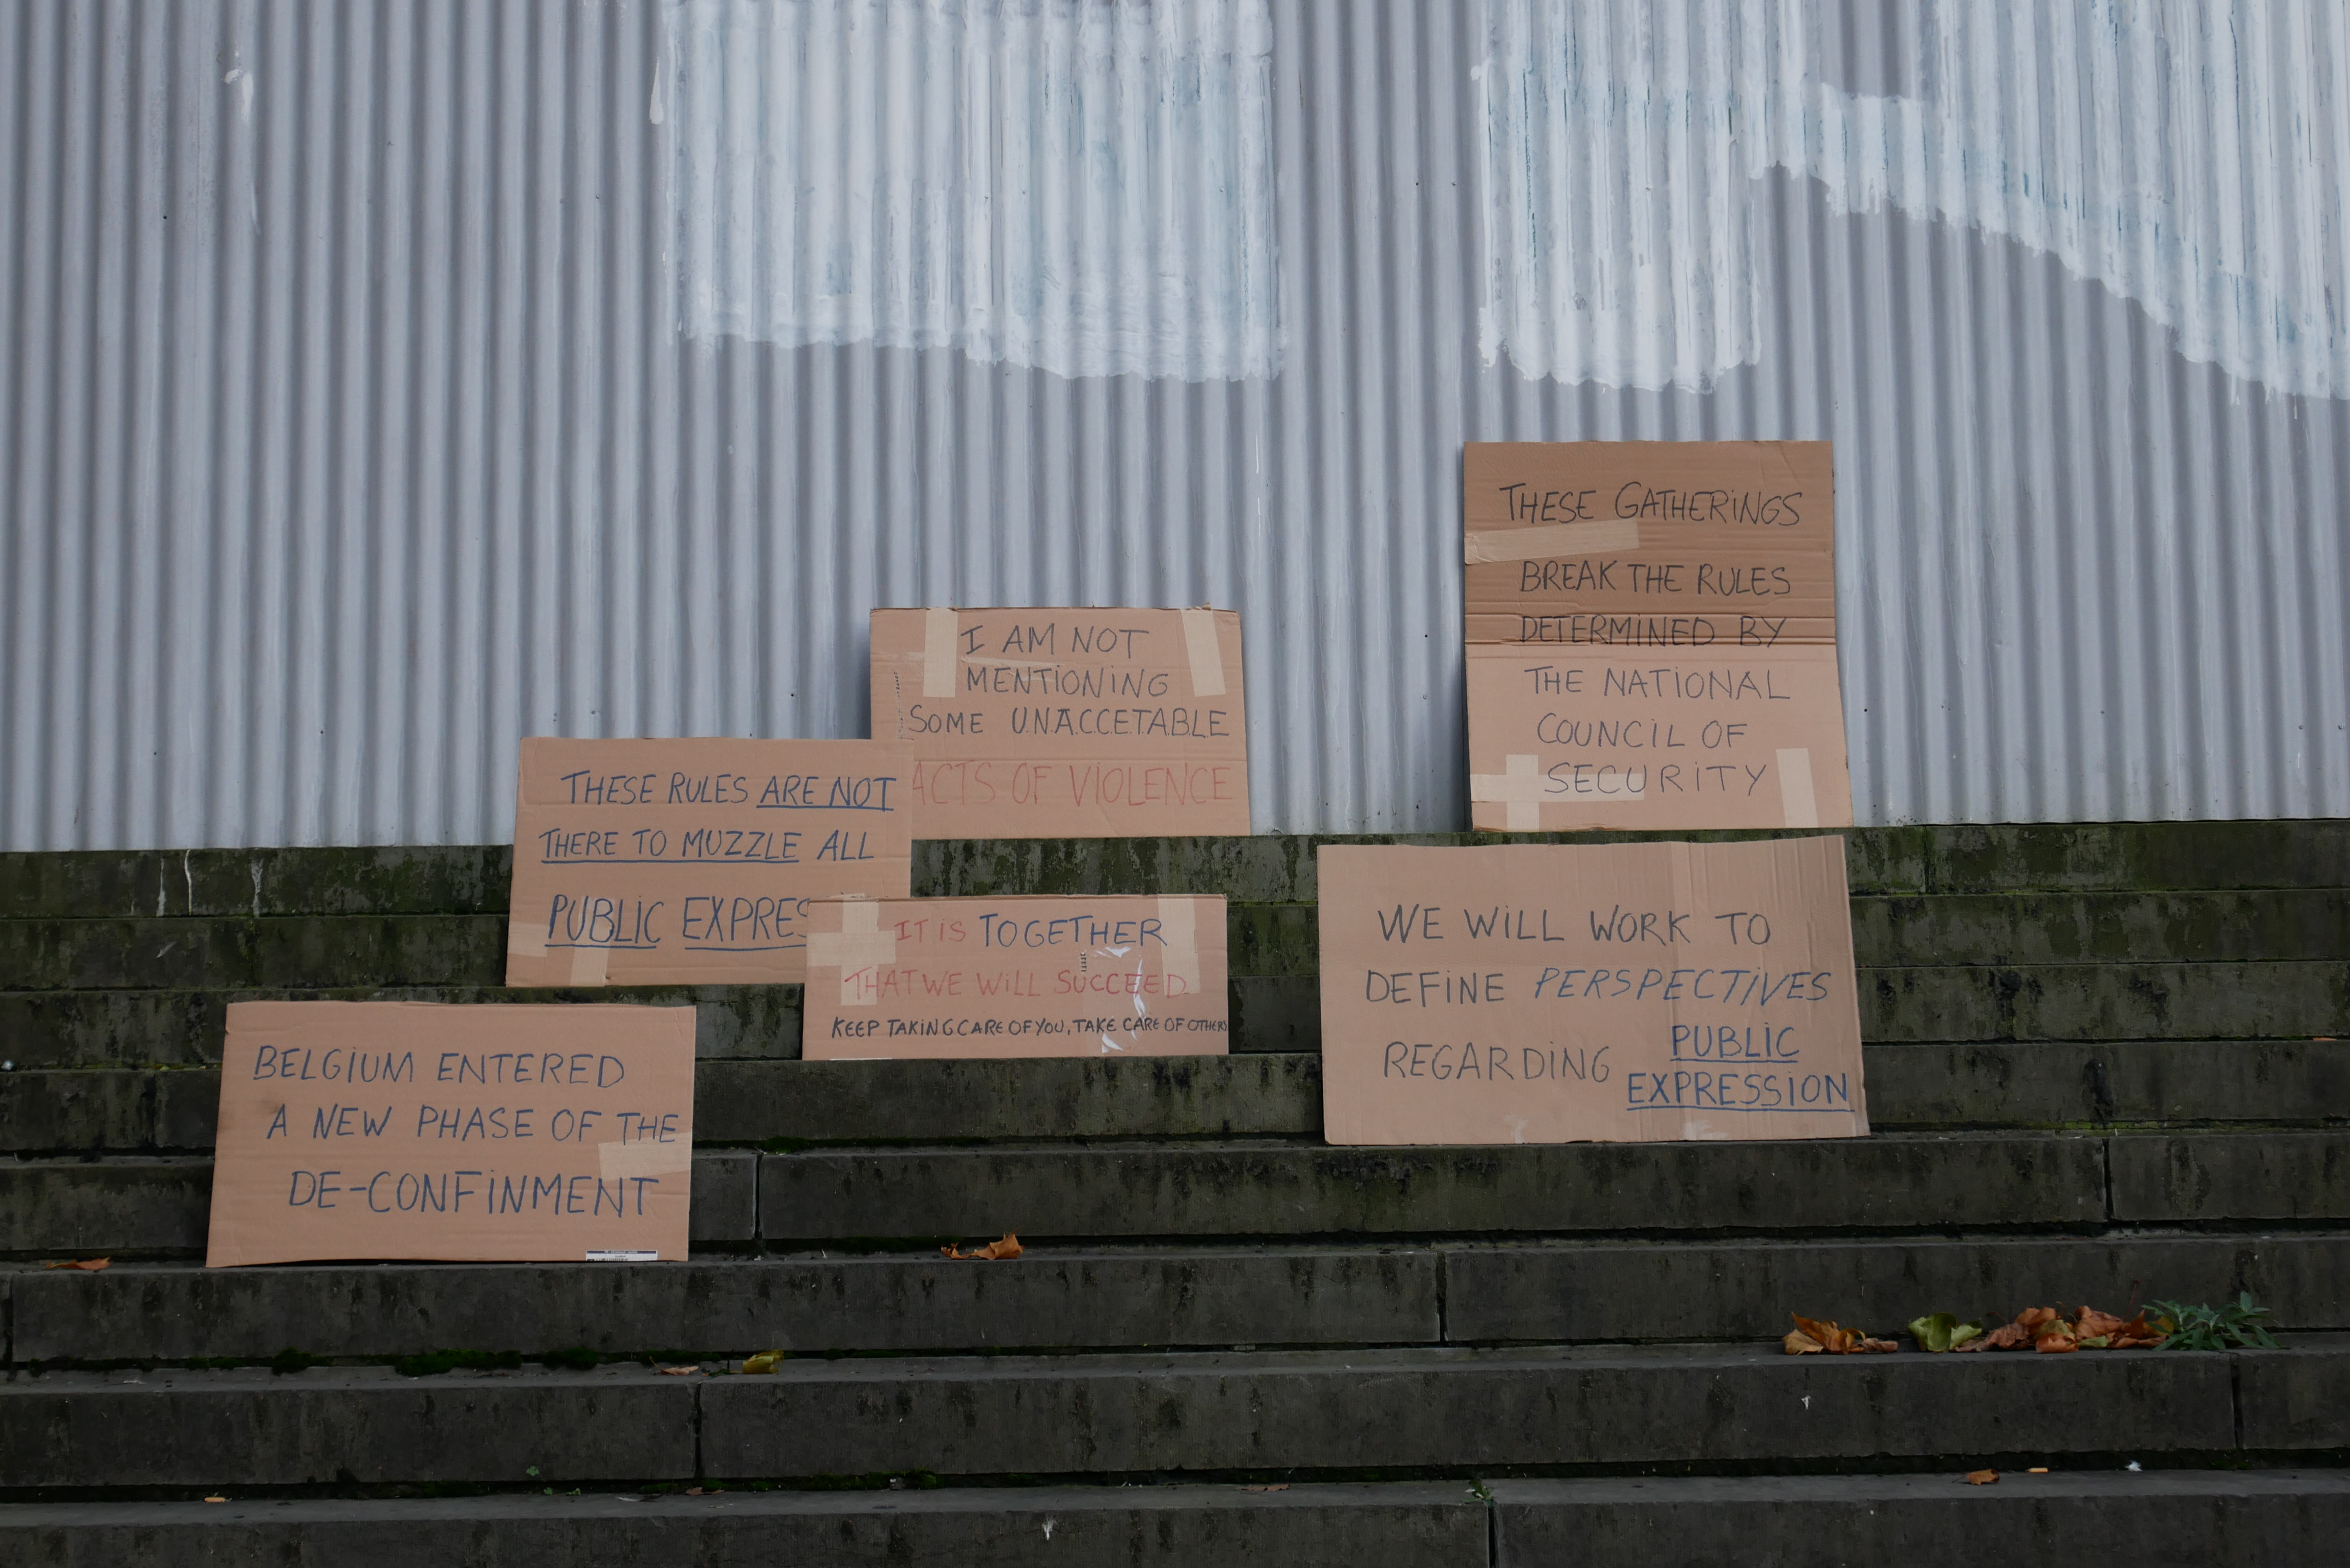 THESE GATHERINGS
BREAK THE RULES
DETERMINED BY
THE NATIONAL
COUNCIL OF
SECURITY
I AM NOT
MENTIONING
SOME U.N.A.C.C.E.T.A.B.L.E
ACTS OF VIOLENCE
THESE RULES ARE NOT
THERE TO MUZZLE ALL
PUBLIC EXPRES
IT IS TOGETHER
THAT WE WILL SUCCEED
KEEP TAKING CARE OF YOU, TAKE CARE OF OTHERS
WE WILL WORK TO
DEFINE PERSPECTIVES
REGARDING PUBLIC
EXPRESSION
BELGIUM ENTERED
A NEW PHASE OF THE
DE-CONFINMENT